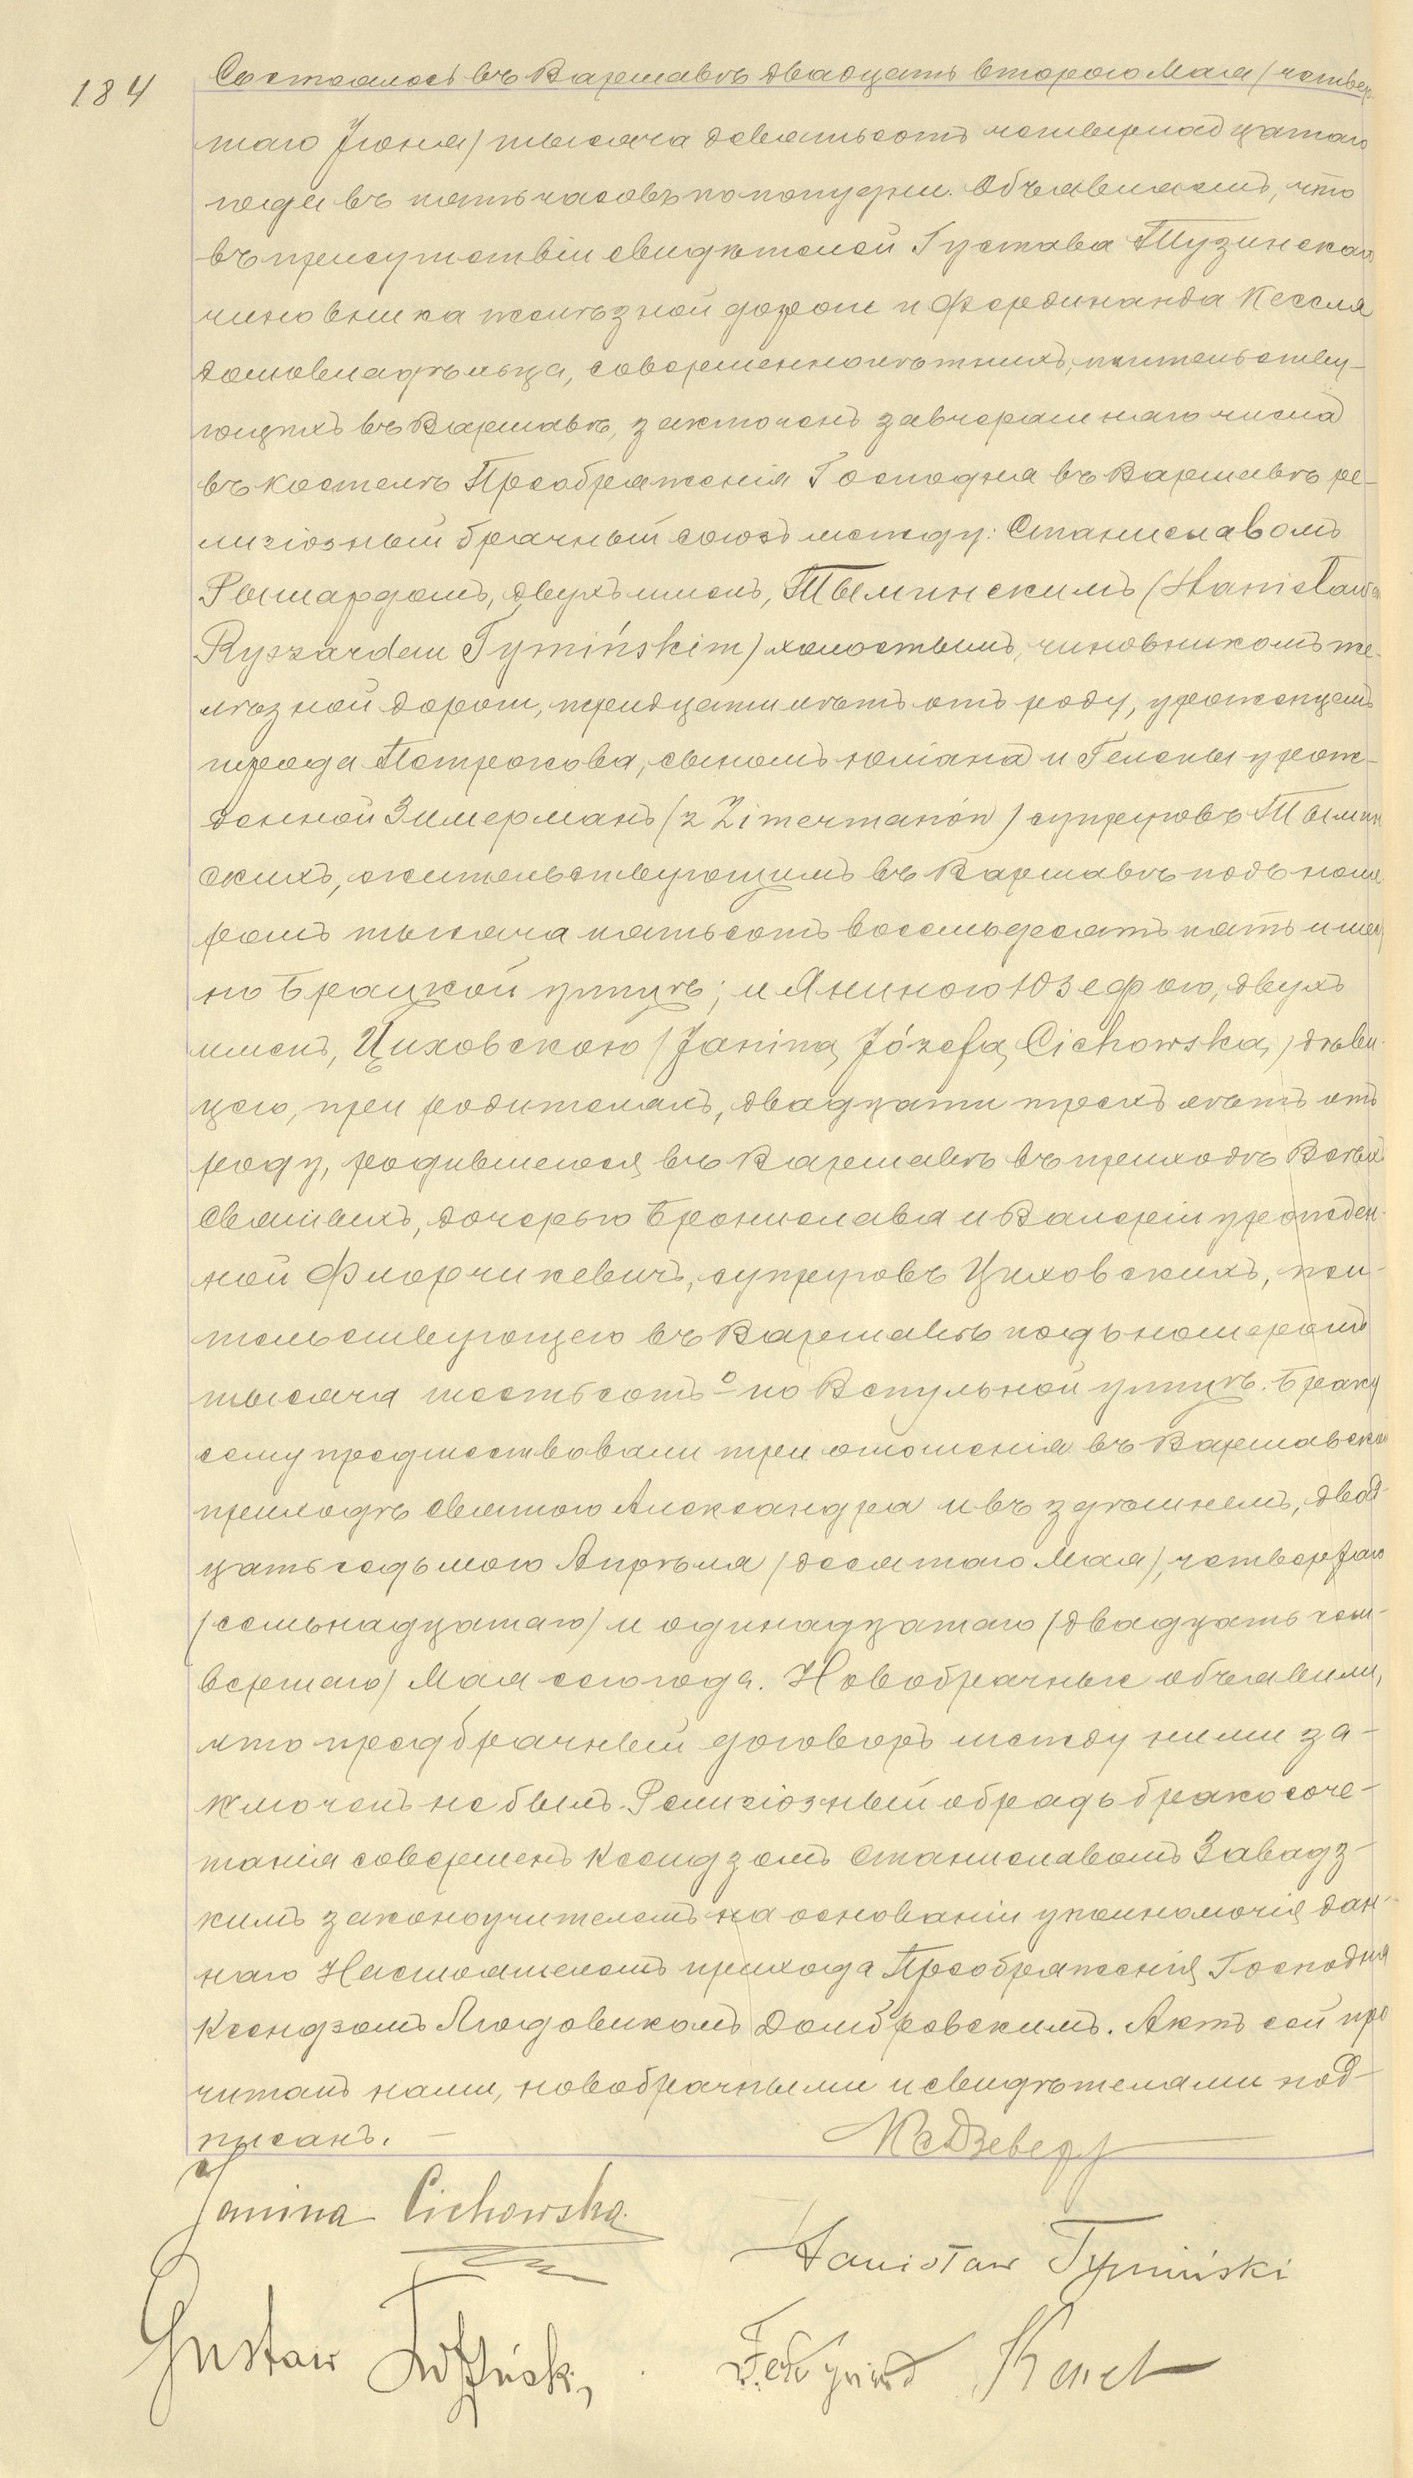 184
Состоялось въ Варшавѣ двадцать второго Мая /четвер-
таго Іюня/ тысяча девятьсотъ четырнадцатаго
года въ пять часовъ по полудни. Объявляемъ, что
въ присутствіи свидѣтелей Густава Тузинскаго
чиновника желѣзной дороги и Фердинанда Кесселя
домовладѣльца, совершеннолѣтнихъ, жительству-
ющихъ въ Варшавѣ, заключенъ завчерашнаго числа
въ костелѣ Преображенія Господня въ Варшавѣ ре-
лигіозный брачный союзъ между: Станиславомъ
Рышардомъ, двухъ именъ, Тыминскимъ (Stanisławem
Ryszardem Tymińskim) холостымъ, чиновникомъ же-
лѣзной дороги, тридцати лѣтъ отъ роду, урожденцемъ
города Петрокова, сыномъ Юліана и Гелены урож-
денной Зимерманъ /z Zimermanów/ супруговъ Тымин-
скихъ, жительствующимъ въ Варшавѣ подъ номе-
ромъ тысяча пятьсотъ восемьдесятъ пять
по Брацкой улицѣ; и Яниною Юзефою, двухъ
именъ, Циховскою /Janiną Józefą Cichowską/ дѣви-
цею, при родителяхъ, двадцати трехъ лѣтъ отъ
роду, родившеюся въ Варшавѣ въ приходѣ Всѣхъ
Святыхъ, дочерью Бронислава и Валеріи урожден-
ной Флорчикевичъ, супруговъ Циховскихъ, жи-
тельствующею въ Варшавѣ подъ номеромъ
тысяча шестьсотъ по Вспульной улицѣ. Браку
сему предшествовали три оглошенія въ Варшавскомъ
приходѣ святого Александра и въ здѣшнемъ, двад-
цать седьмого Апрѣля /десятаго Мая/, четвертаго
/семьнадцатаго/ и одинадцатаго /двадцать чет-
вертаго/ Мая сего года. Новобрачные объявили,
что предбрачный договоръ между ними за-
ключенъ не былъ. Религіозный обрядъ бракосоче-
танія совершенъ Ксендзомъ Станиславомъ Завадз-
кимъ законоучителемъ на основаніи уполномочія дан-
наго Настоятелемъ прихода Преображенія Господня
Ксендзомъ Людовикомъ Домбровскимъ. Актъ сей про
читанъ нами, новобрачными и свидѣтелями под-
писанъ.
Janina Cichowska
Stanisław Tymiński
Gustaw
Ferdynand